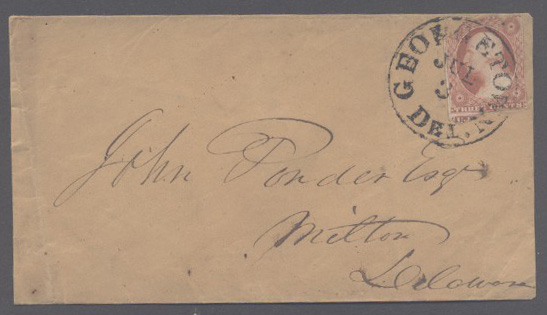 GEORGETOWN
JUL
3
DEL.
THREE CENTS
John Ponder Esqr
Milton
Delaware